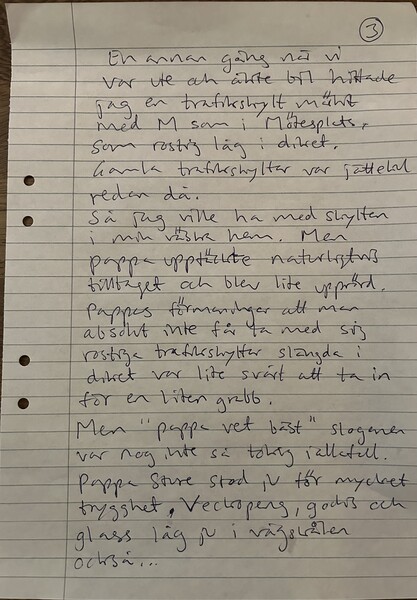 3
En annan gång när vi
var ute och åkte bil hittade
jag en trafikskylt märkt
med M som i Mötesplats,
som rostig låg i diket.
Gamla trafikskyltar var jättekul
redan då.
Så jag ville ha med skylten
i min väska hem. Men
pappa upptäckte naturligtvis
tilltaget och blev lite upprörd.
Pappas förmaningar att man
absolut inte får ta med sig
rostiga trafikskyltar slängda i
diket var lite svårt att ta in
för en liten grabb.
Men "pappa vet bäst" sloganen
var nog inte så tokig iallafall.
Pappa Sture stod ju för mycket
trygghet, Veckopeng, godis och
glass låg ju i vågskålen
också...